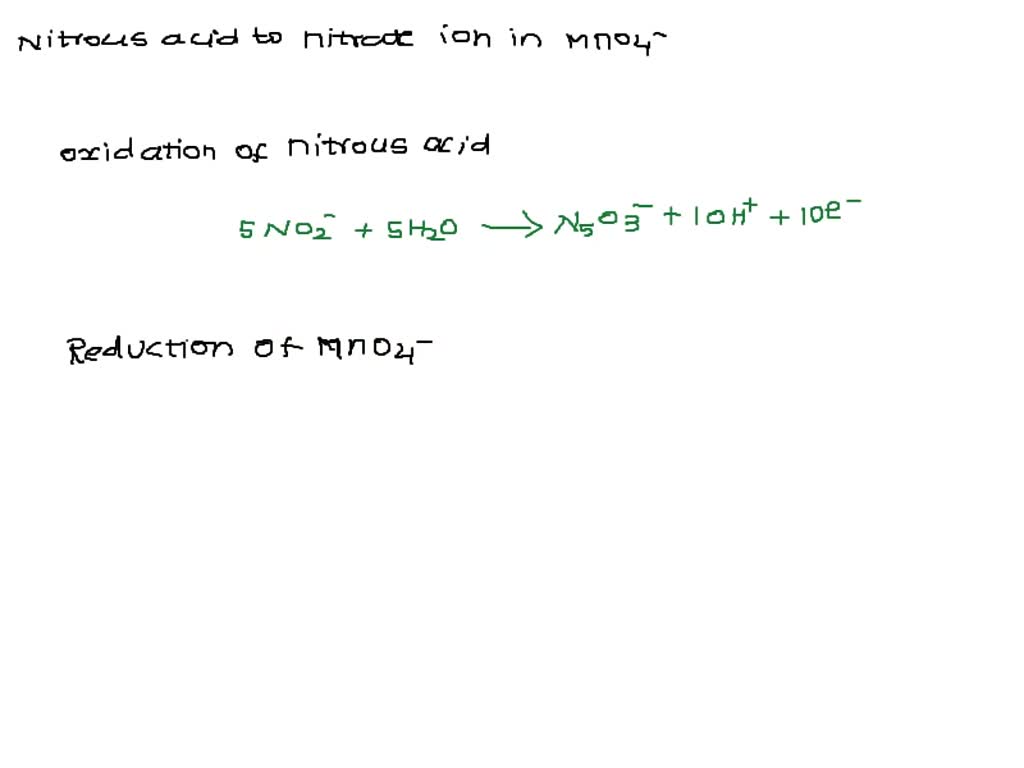 Nitrous acid to nitrate ion in MnO4-
oxidation of nitrous acid
5NO2- + 5H2O → N5O3- + 10H+ + 10e-
Reduction of MnO4-